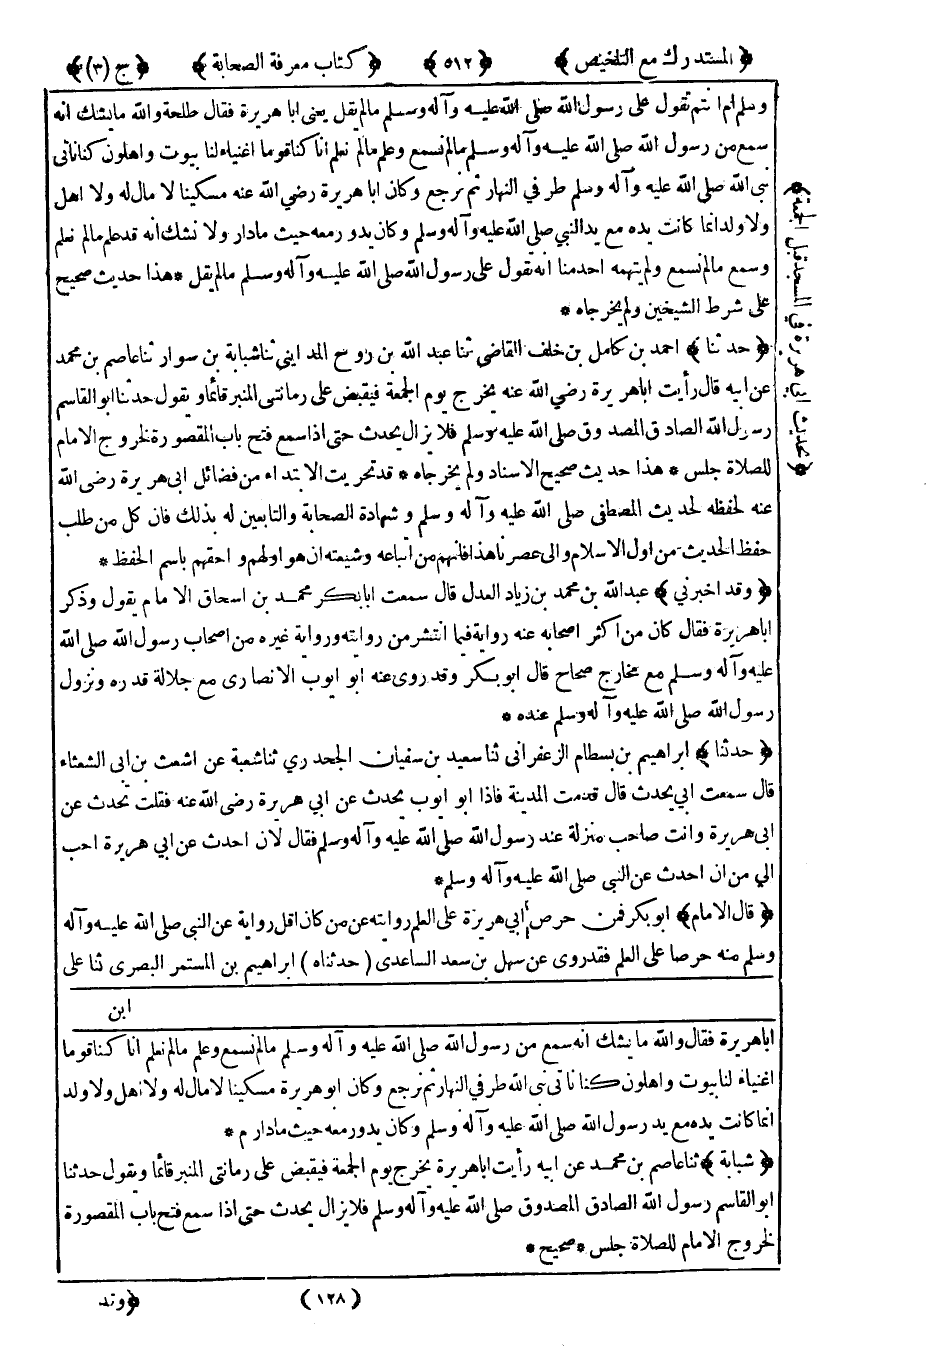 ﴿ المستدرك مع التلخيص ﴾ ﴿ ٥١٢ ﴾ ﴿ كتاب معرفة الصحابة ﴾ ﴿ ج (٣) ﴾
وسلم ام انتم تقول على رسول الله صلى الله عليه وآله وسلم مالم يقل يعنى ابا هريرة فقال طلحة والله مانشك انه
سمع من رسول الله صلى الله عليه وآله وسلم مالم نسمع وعلم مالم نعلم انا كنا قوما اغنياء لنا بيوت واهلون كنا نأتى
نبى الله صلى الله عليه وآله وسلم طرفي النهار ثم نرجع وكان ابا هريرة رضي الله عنه مسكينا لا مال له ولا اهل
ولا ولد انما كانت يده مع يد النبي صلى الله عليه وآله وسلم وكان يدور معه حيث مادار ولا نشك انه قد علم مالم نعلم
وسمع مالم نسمع ولم يتهمه احد منا انه تقول على رسول الله صلى الله عليه وآله وسلم مالم يقل * هذا حديث صحيح
على شرط الشيخين ولم يخرجاه *
﴿ حدثنا ﴾ احمد بن كامل بن خلف القاضي ثنا عبد الله بن روح المدايني ثنا شبابة بن سوار ثنا عاصم بن محمد
عن ابيه قال رأيت اباهريرة رضي الله عنه يخرج يوم الجمعة فيقبض على رمانتى المنبر قائما ويقول حدثنا ابو القاسم
رسول الله الصادق المصدوق صلى الله عليه وسلم فلا يزال يحدث حتى اذا سمع فتح باب المقصورة لخروج الامام
للصلاة جلس * هذا حديث صحيح الاسناد ولم يخرجاه * قد تحريت الابتداء من فضائل ابى هريرة رضى الله
عنه لحفظه لحديث المصطفى صلى الله عليه وآله وسلم وشهادة الصحابة والتابعين له بذلك فان كل من طلب
حفظ الحديث من اول الاسلام والى عصرنا هذا فانهم من اتباعه وشيعته اذ هو اولهم واحقهم باسم الحفظ *
﴿ وقد اخبرني ﴾ عبدالله بن محمد بن زياد العدل قال سمعت ابا بكر محمد بن اسحاق الامام يقول وذكر
اباهريرة فقال كان من اكثر اصحابه عنه رواية فيما انتشر من روايته ورواية غيره من اصحاب رسول الله صلى الله
عليه وآله وسلم مع مخارج صحاح قال ابو بكر وقد روى عنه ابو ايوب الانصارى مع جلالة قدره ونزول
رسول الله صلى الله عليه وآله وسلم عنده *
﴿ حدثنا ﴾ ابراهيم بن بسطام الزعفرانى ثنا سعيد بن سفيان الجحدري ثنا شعبة عن اشعث بن ابى الشعثاء
قال سمعت ابي يحدث قال قدمت المدينة فاذا ابو ايوب يحدث عن ابي هريرة رضى الله عنه فقلت تحدث عن
ابى هريرة وانت صاحب منزلة عند رسول الله صلى الله عليه وآله وسلم فقال لان احدث عن ابي هريرة احب
الي من ان احدث عن النبى صلى الله عليه وآله وسلم *
﴿ قال الامام ﴾ ابو بكر فمن حرص ابي هريرة على العلم روايته عن من كان اقل رواية عن النبى صلى الله عليه وآله
وسلم منه حرصا على العلم فقد روى عن سهل بن سعد الساعدى ( حدثناه ) ابراهيم بن المستمر البصرى ثنا على
ابن
﴿ تحديث ابي هريرة في المسجد قبل الجمعة ﴾
اباهريرة فقال والله مانشك انه سمع من رسول الله صلى الله عليه وآله وسلم مالم نسمع وعلم مالم نعلم انا كنا قوما
اغنياء لنا بيوت واهلون كنا نأتى نبى الله طرفى النهار ثم نرجع وكان ابو هريرة مسكينا لا مال له ولا اهل ولا ولد
انما كانت يده مع يد رسول الله صلى الله عليه وآله وسلم وكان يدور معه حيث مادار م *
﴿ شبابة ﴾ ثنا عاصم بن محمد عن ابيه رأيت اباهريرة يخرج يوم الجمعة فيقبض على رمانتى المنبر قائما ويقول حدثنا
ابو القاسم رسول الله الصادق المصدوق صلى الله عليه وآله وسلم فلا يزال يحدث حتى اذا سمع فتح باب المقصورة
لخروج الامام للصلاة جلس * صحيح *
(١٢٨) ﴿ وقد